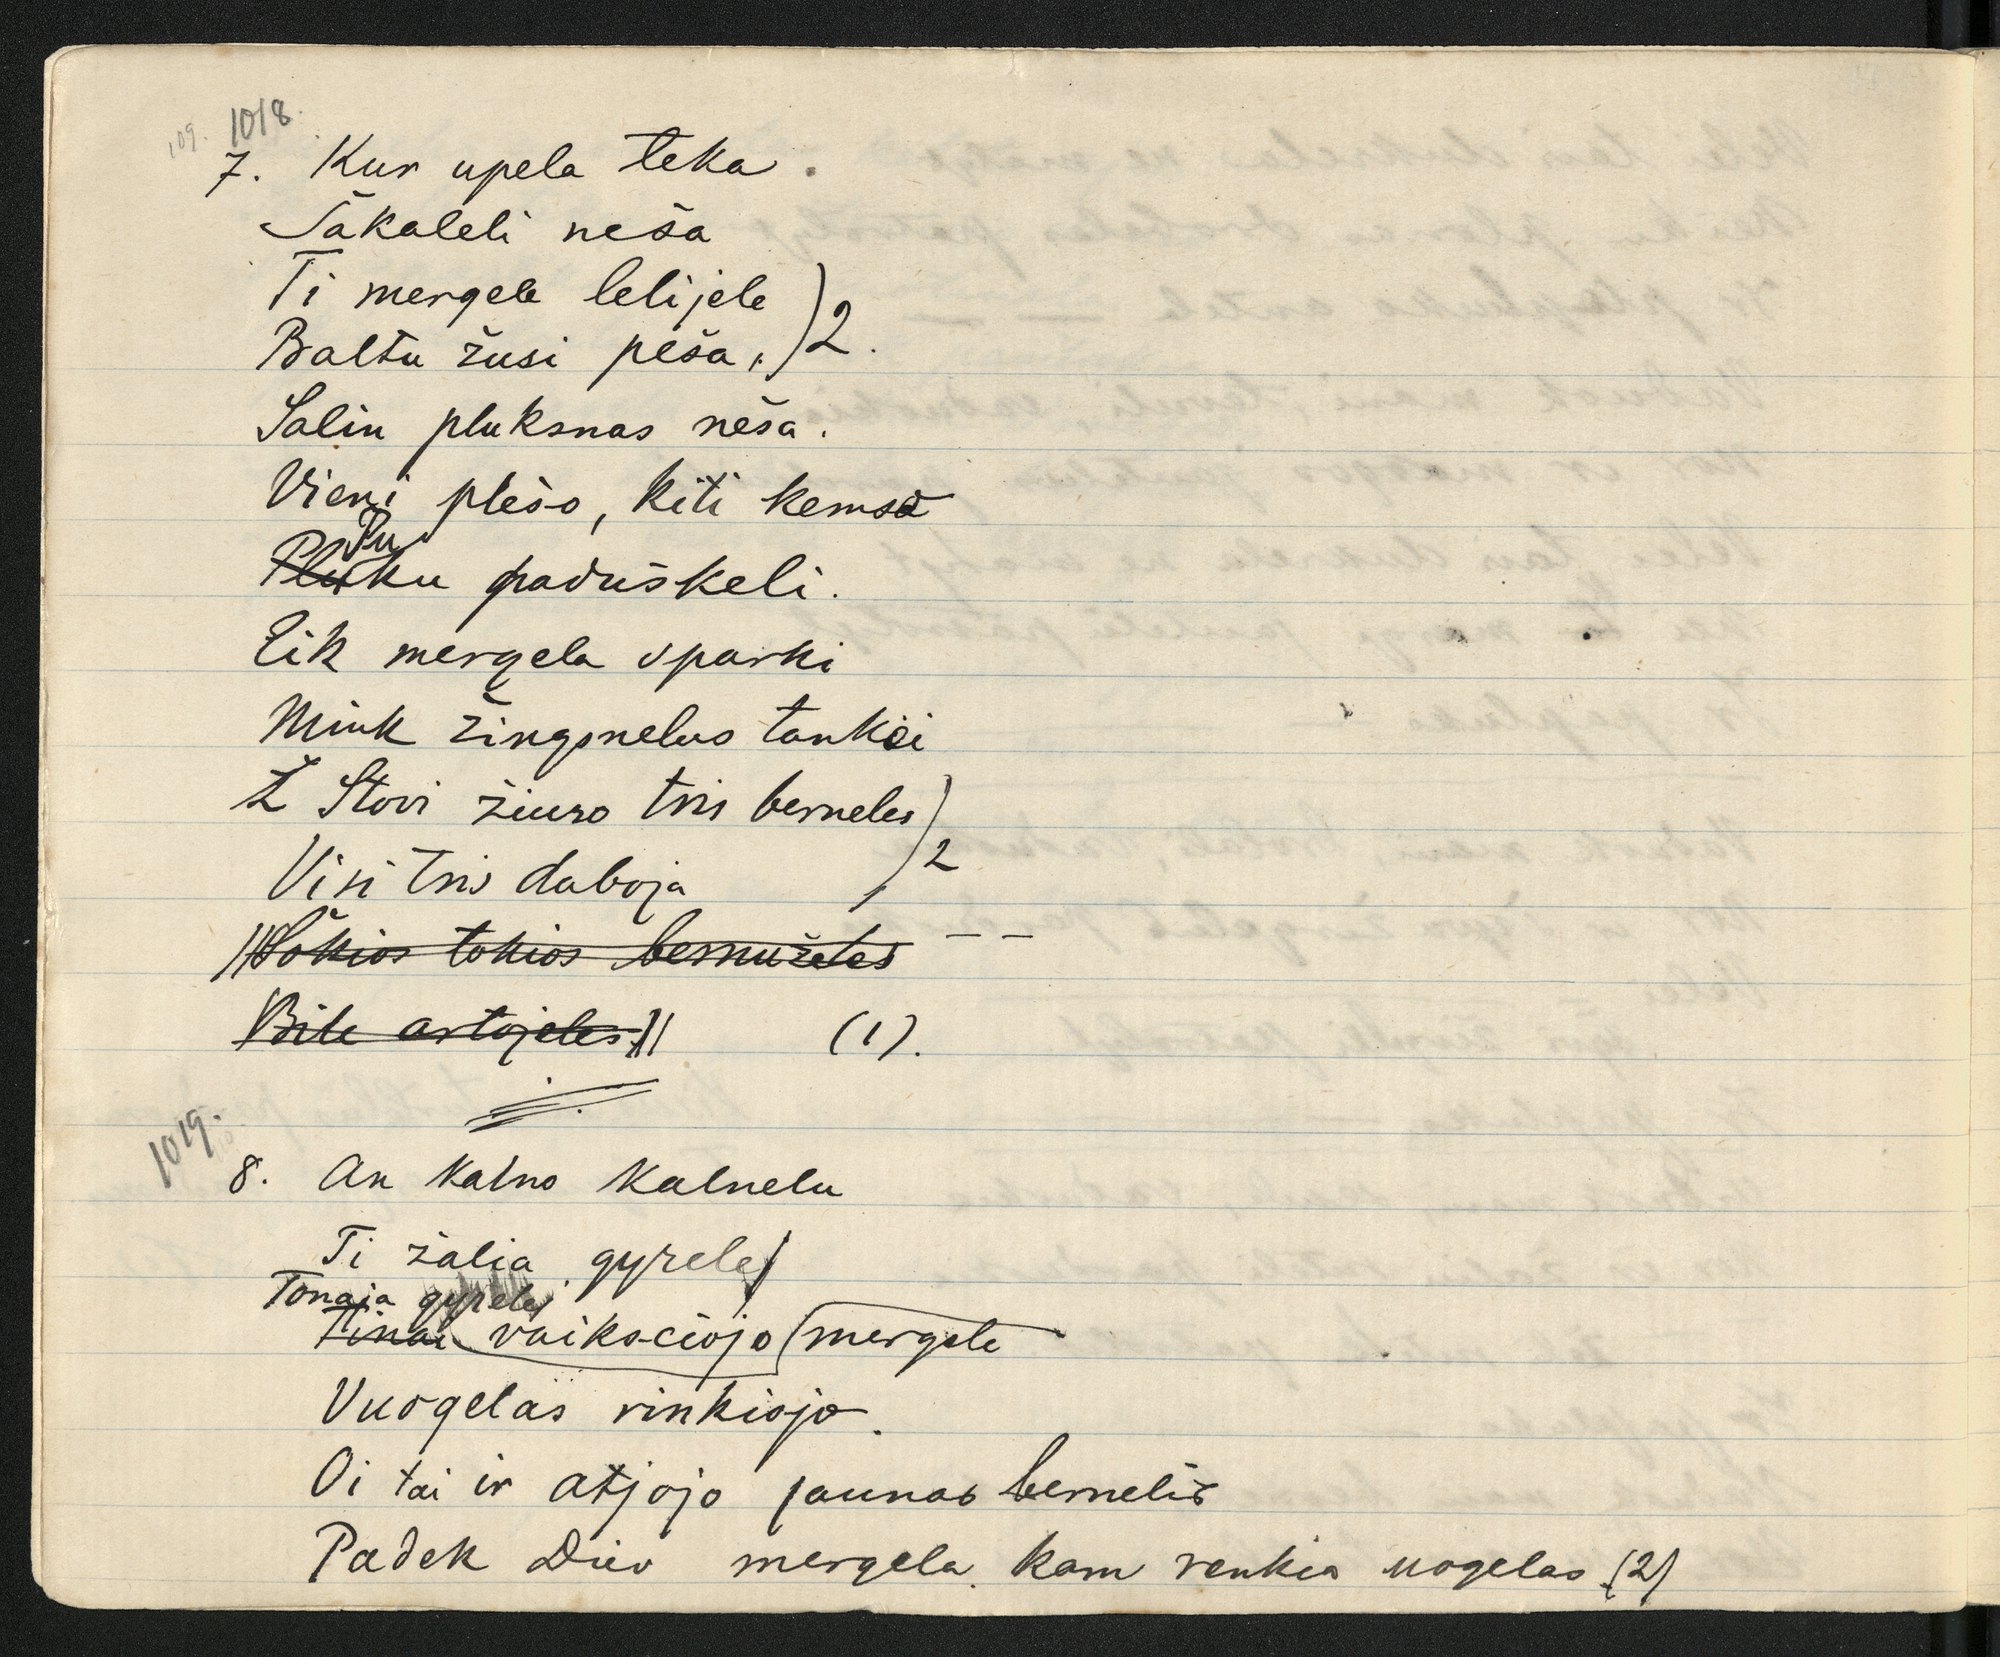 109. 1018.
7. Kur upela teka.
Šakaleli neša
Ti mergele lelijele
Baltu žusi peša, ) 2.
Salin pluksnas neša.
Vieni plešo, kiti kemša
Pu
Pluku paduškeli.
Eik mergela sparki
Mink žingsnelus tankei
Ž Stovi žiuro tris berneles
Visi tris daboja ) 2
Šokios tokios bernuželes – –
Bile artojeles (1).
1019.
8. An kalno kalnelu
Ti žalia gyrele
Tonaja gyrele
Tinai vaiksciojo mergele
Vuogelas rinkiojo.
Oi tai ir atjojo jaunas bernelis
Padek Diev mergela kam renkia uogelas (2)